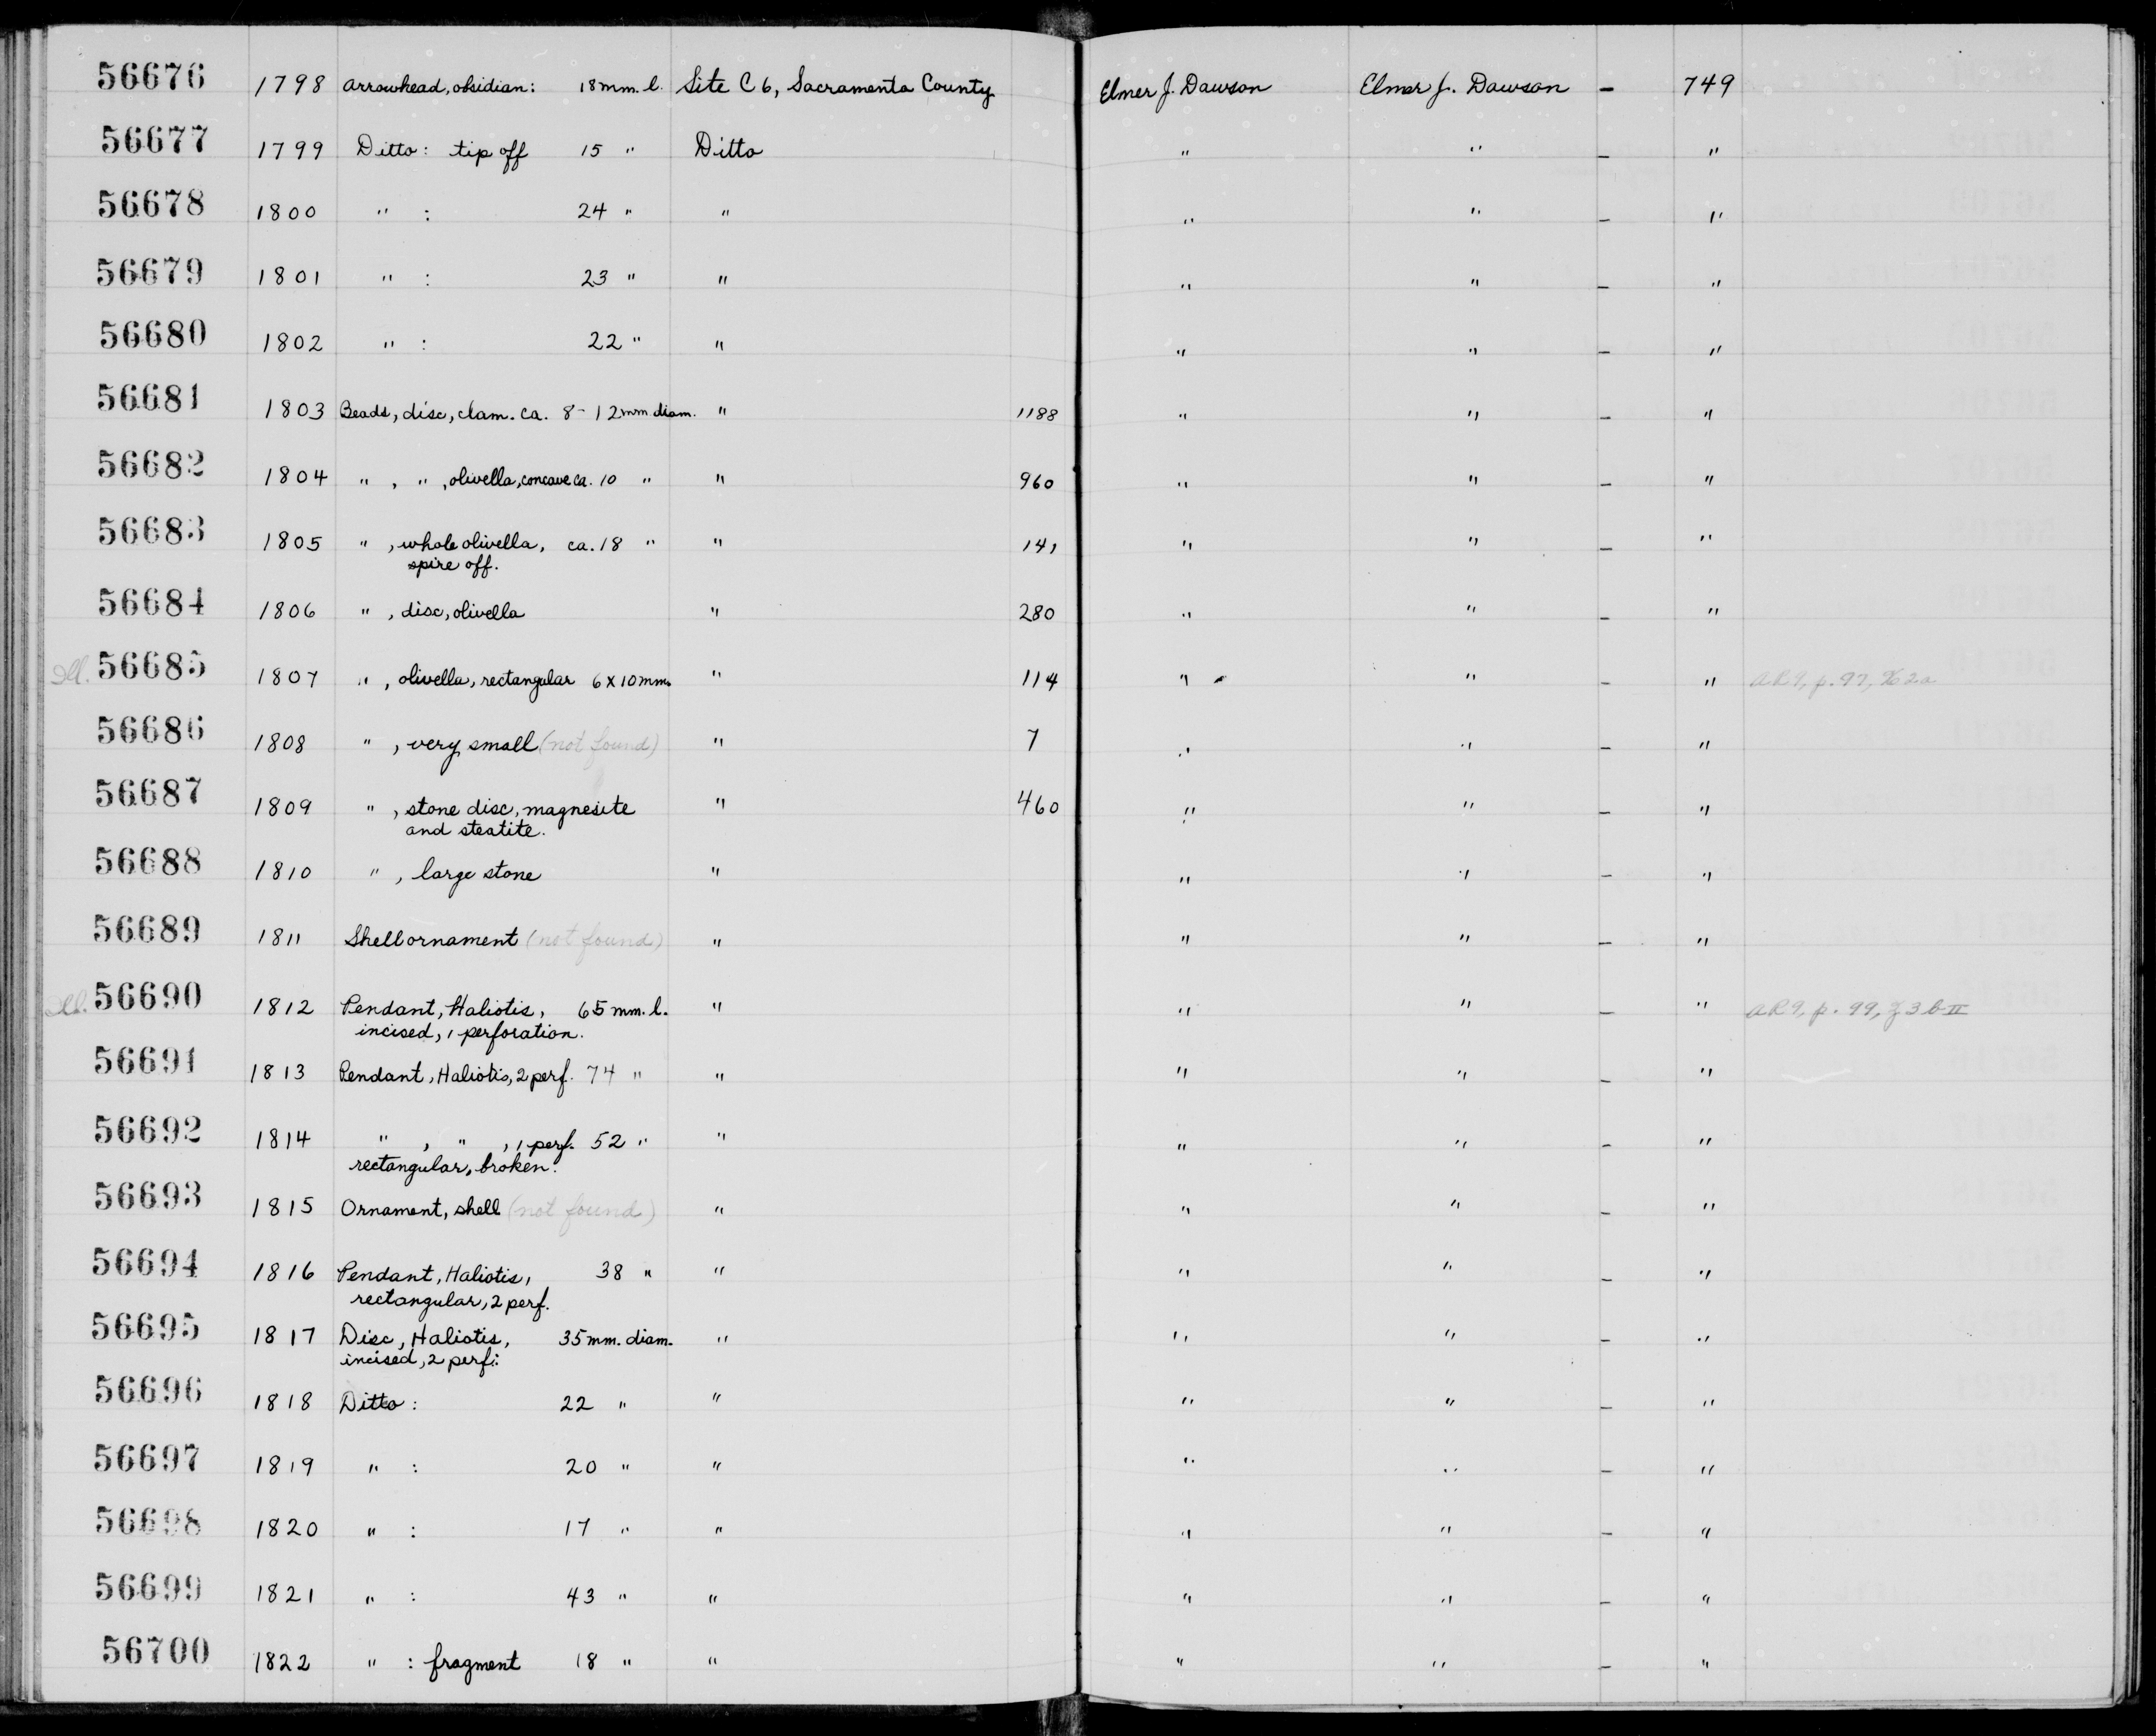 56676 1798 Arrowhead, obsidian: 18 mm. l. Site C 6, Sacramento County Elmer J. Dawson Elmer J. Dawson – 749
56677 1799 Ditto: tip off 15 " Ditto " " – "
56678 1800 " : 24 " " " " – "
56679 1801 " : 23 " " " " – "
56680 1802 " : 22 " " " " – "
56681 1803 Beads, disc, clam. ca. 8-12 mm diam. " 1188 " " – "
56682 1804 " , " , olivella, concave ca. 10 " " 960 " " – "
56683 1805 " , whole olivella, ca. 18 " " 141 " " – "
spire off.
56684 1806 " , disc, olivella " 280 " " – "
Ill. 56685 1807 " , olivella, rectangular 6 X 10 mm. " 114 " " – " AR9, p. 97, 2a
56686 1808 " , very small (not found) " 7 " " – "
56687 1809 " , stone disc, magnesite " 460 " " – "
and steatite.
56688 1810 " , large stone " " " – "
56689 1811 Shell ornament (not found) " " " – "
Ill. 56690 1812 Pendant, Haliotis, 65 mm. l. " " " – " AR9, p. 99, f 3 b II
incised, 1 perforation.
56691 1813 Pendant, Haliotis, 2 perf. 74 " " " " – "
56692 1814 " , " , 1 perf. 52 " " " " – "
rectangular, broken.
56693 1815 Ornament, shell (not found) " " " – "
56694 1816 Pendant, Haliotis, 38 " " " " – "
rectangular, 2 perf.
56695 1817 Disc, Haliotis, 35 mm. diam. " " " – "
incised, 2 perf.:
56696 1818 Ditto: 22 " " " " – "
56697 1819 " : 20 " " " " – "
56698 1820 " : 17 " " " " – "
56699 1821 " : 43 " " " " – "
56700 1822 " : fragment 18 " " " " – "